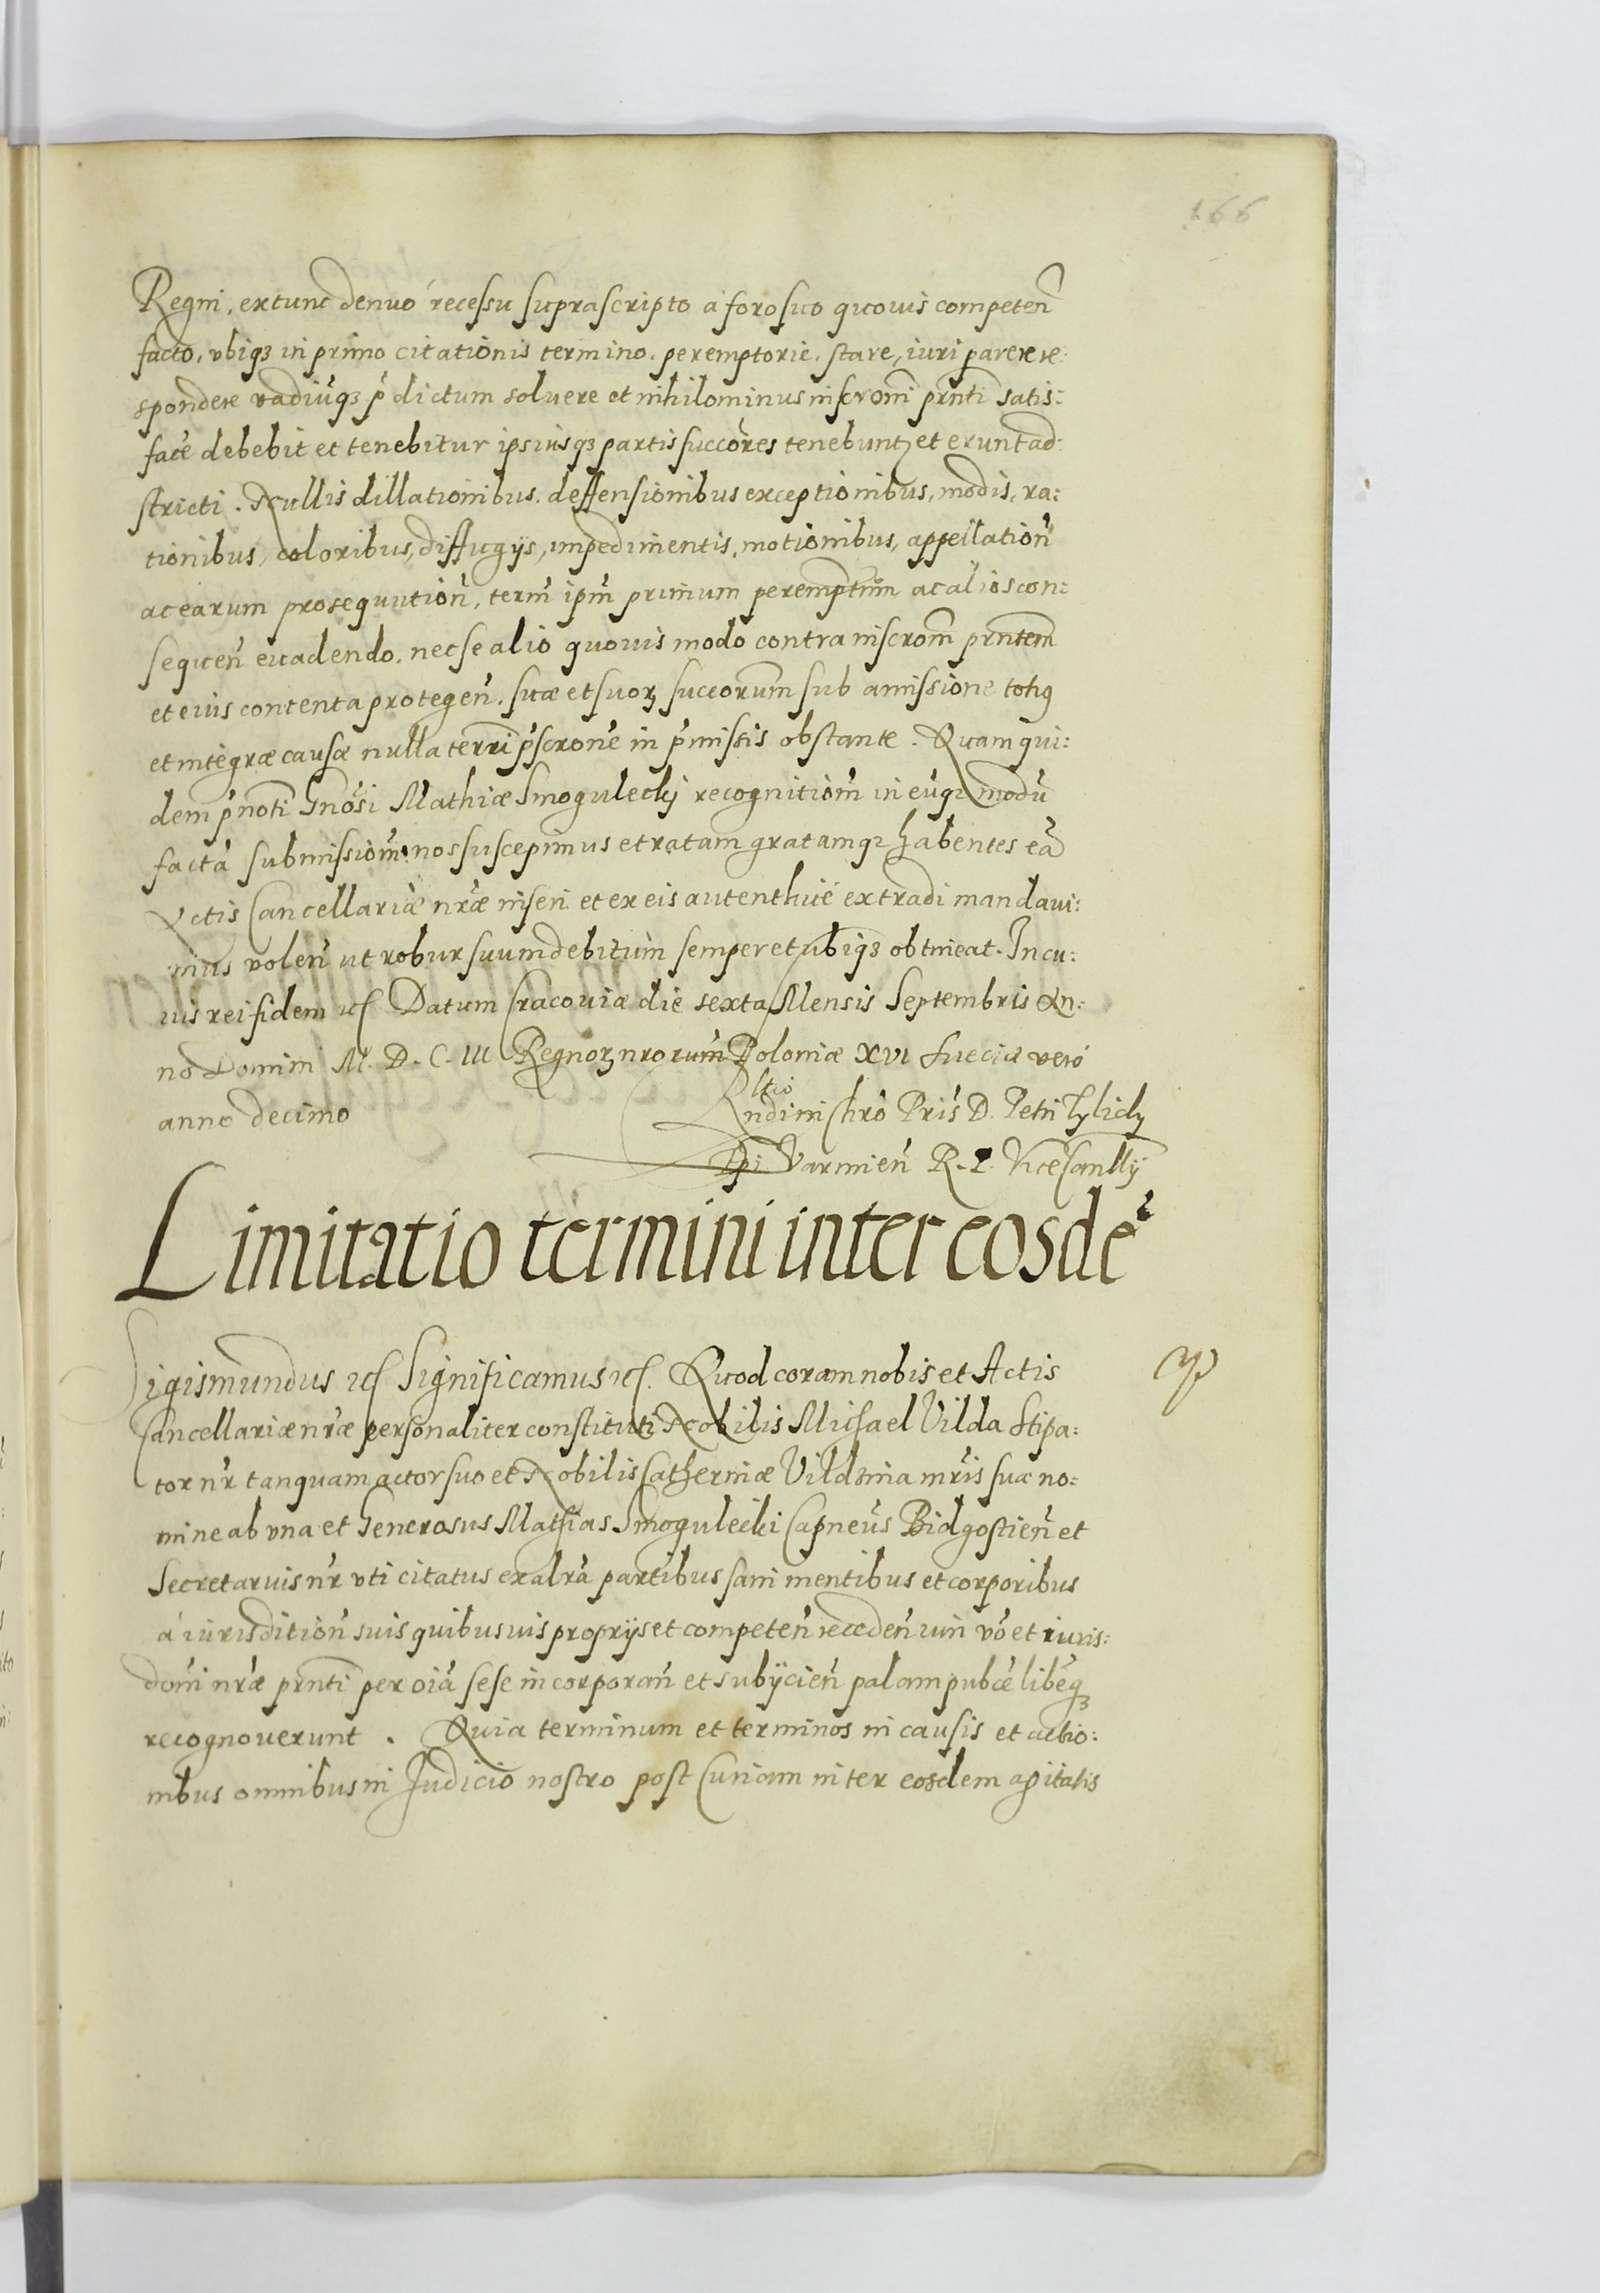 166
Regni, extunc denuo recessu suprascripto a foro suo quovis competeñ
facto, vbiq₃ in primo citationis termino, peremptorie, stare, iuri parere re-
spondere vadiuq₃ p̄dictum soluere et nihilominus inscroni prñti satis:
faće debebit et tenebitur ipsiusq₃ partis succōres tenebunt et erunt ad:
stricti. Nullis dillationibus, deffensionibus exceptionibus, modis, ra:
tionibus, coloribus, diffugijs, impedimentis, motionibus, appellatioñ
ac earum prosequutioñ, term̄ ipm̄ primum peremptm̄ ac alios con:
sequeñ euadendo, nec se alio quouis modo contra inscrom̄ prñtem
et eius contenta protegeñ, suæ et suorꝫ succorum sub amissione totiꝰ
et integræ causæ nulla terri p̄scrone in p̄missis obstante. Quam qui:
dem p̄noti Gnōsi Mathiæ Smogulecki recognitiom̄ in euq₃ modū
facta submissiom̄ nos suscepimus et ratam gratamq₃ habentes eā
Actis Cancellariæ nr̄æ inseri et ex eis autenthicē extradi mandaui:
mus voleñ ut robur suum debitum semper et ubiq₃ obtineat. In cu:
ius rei fidem etc Datum Cracoviæ die sexta Mensis Septembris An:
no Domini M. D. C. III Regnorꝫ nrorum Poloniæ XVI Sueciæ vero
anno decimo
Rltio
Rndi in Chro Pris D. Petri Tylicky
Epi Varmieñ R. P. ViceCanllij
Limitatio termini inter eosdē
Sigismundus etc Significamus etc. Quod coram nobis et Actis
Cancellariæ nr̄æ personaliter constituti Nobilis Michael Vilda Stipa:
tor nr̄ tanquam actor suo et Nobilis Catherinæ Vildzina mr̄is suæ no:
mine ab vna et Generosus Mathias Smogulecki Capneūs Bidgostieñ et
Secretarius nr̄ vti citatus ex altrā partibus sani mentibus et corporibus
a iurisditioñ suis quibusuis proprijs et competeñ recedeñ uim vō et iuris:
doni nr̄æ prñti per oīa sese incorporañ et subijcieñ palam pubcē libēq₃
recognouerunt. Quia terminum et terminos in causis et actio:
nibus omnibus in Judicio nostro post Curiam inter eosdem agitatis